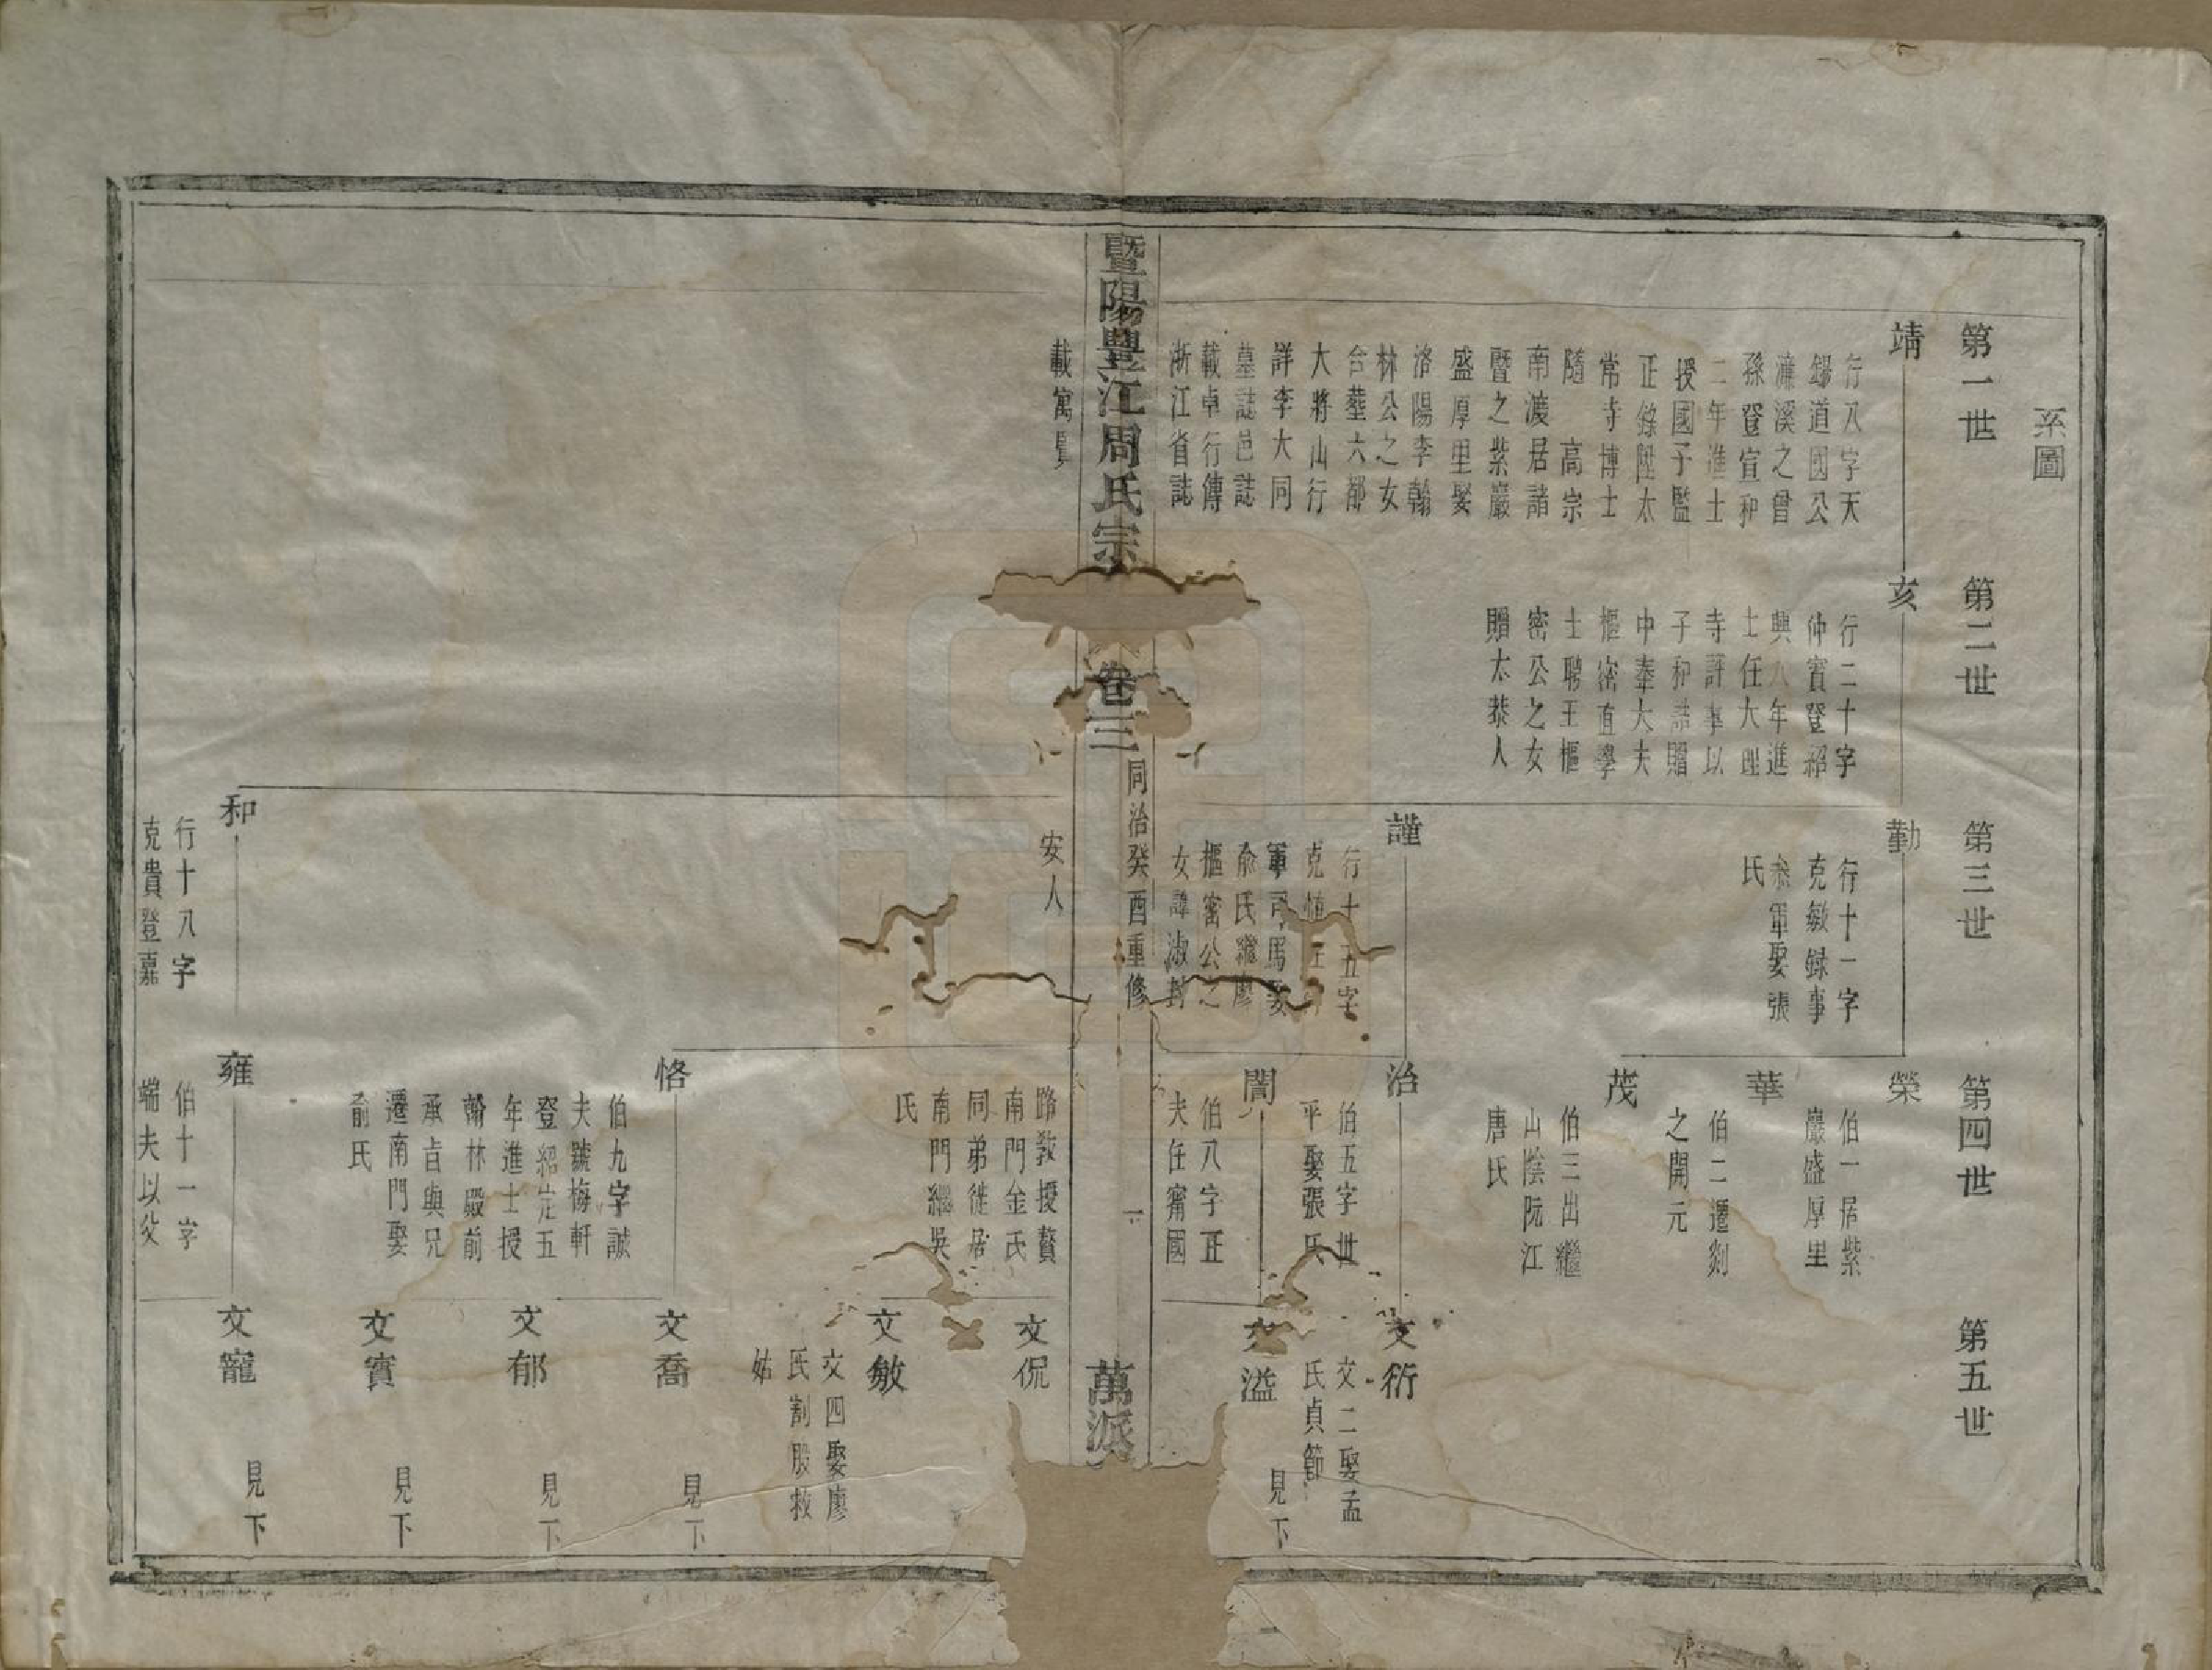 系圖
第一世
第二世
第三世
第四世
第五世
靖
行八字天
錫道國公
濂溪之曾
孫登宣和
二年進士
授國子監
正錄陞太
常寺博士
隨高宗
南渡居諸
暨之紫巖
盛厚里娶
洛陽李翰
林公之女
合塟六都
大將山行
詳李大同
墓誌邑誌
載卓行傳
浙江省誌
載寓賢
亥
行二十字
仲賓登紹
興八年進
士任大理
寺評事以
子和
贈
中奉大夫
樞密直學
士聘王樞
密公之女
贈太恭人
勤
行十一字
克敏録事
叅軍娶張
氏
謹
行十五字
克
軍司馬娶
俞氏繼廖
樞密公之
女諱淑封
安人
和
行十八字
克貴登嘉
榮
伯一居紫
巖盛厚里
華
伯二遷剡
之開元
茂
伯三出繼
山陰阮江
唐氏
治
伯五字世
平娶張氏
誾
伯八字正
夫任甯國
路教授贅
南門金氏
同弟徙居
南門繼吳
氏
恪
伯九字誠
夫號梅軒
登紹定五
年進士授
翰林殿前
承旨與兄
遷南門娶
俞氏
雍
伯十一字
端夫以父
文衍
文二娶孟
氏貞節
文溢
見下
文侃
文敏
文四娶廖
氏割股救
姑
文喬
見下
文郁
見下
文賓
見下
文寵
見下
暨陽豐江周氏宗
卷三
同治癸酉重修
一
萬派